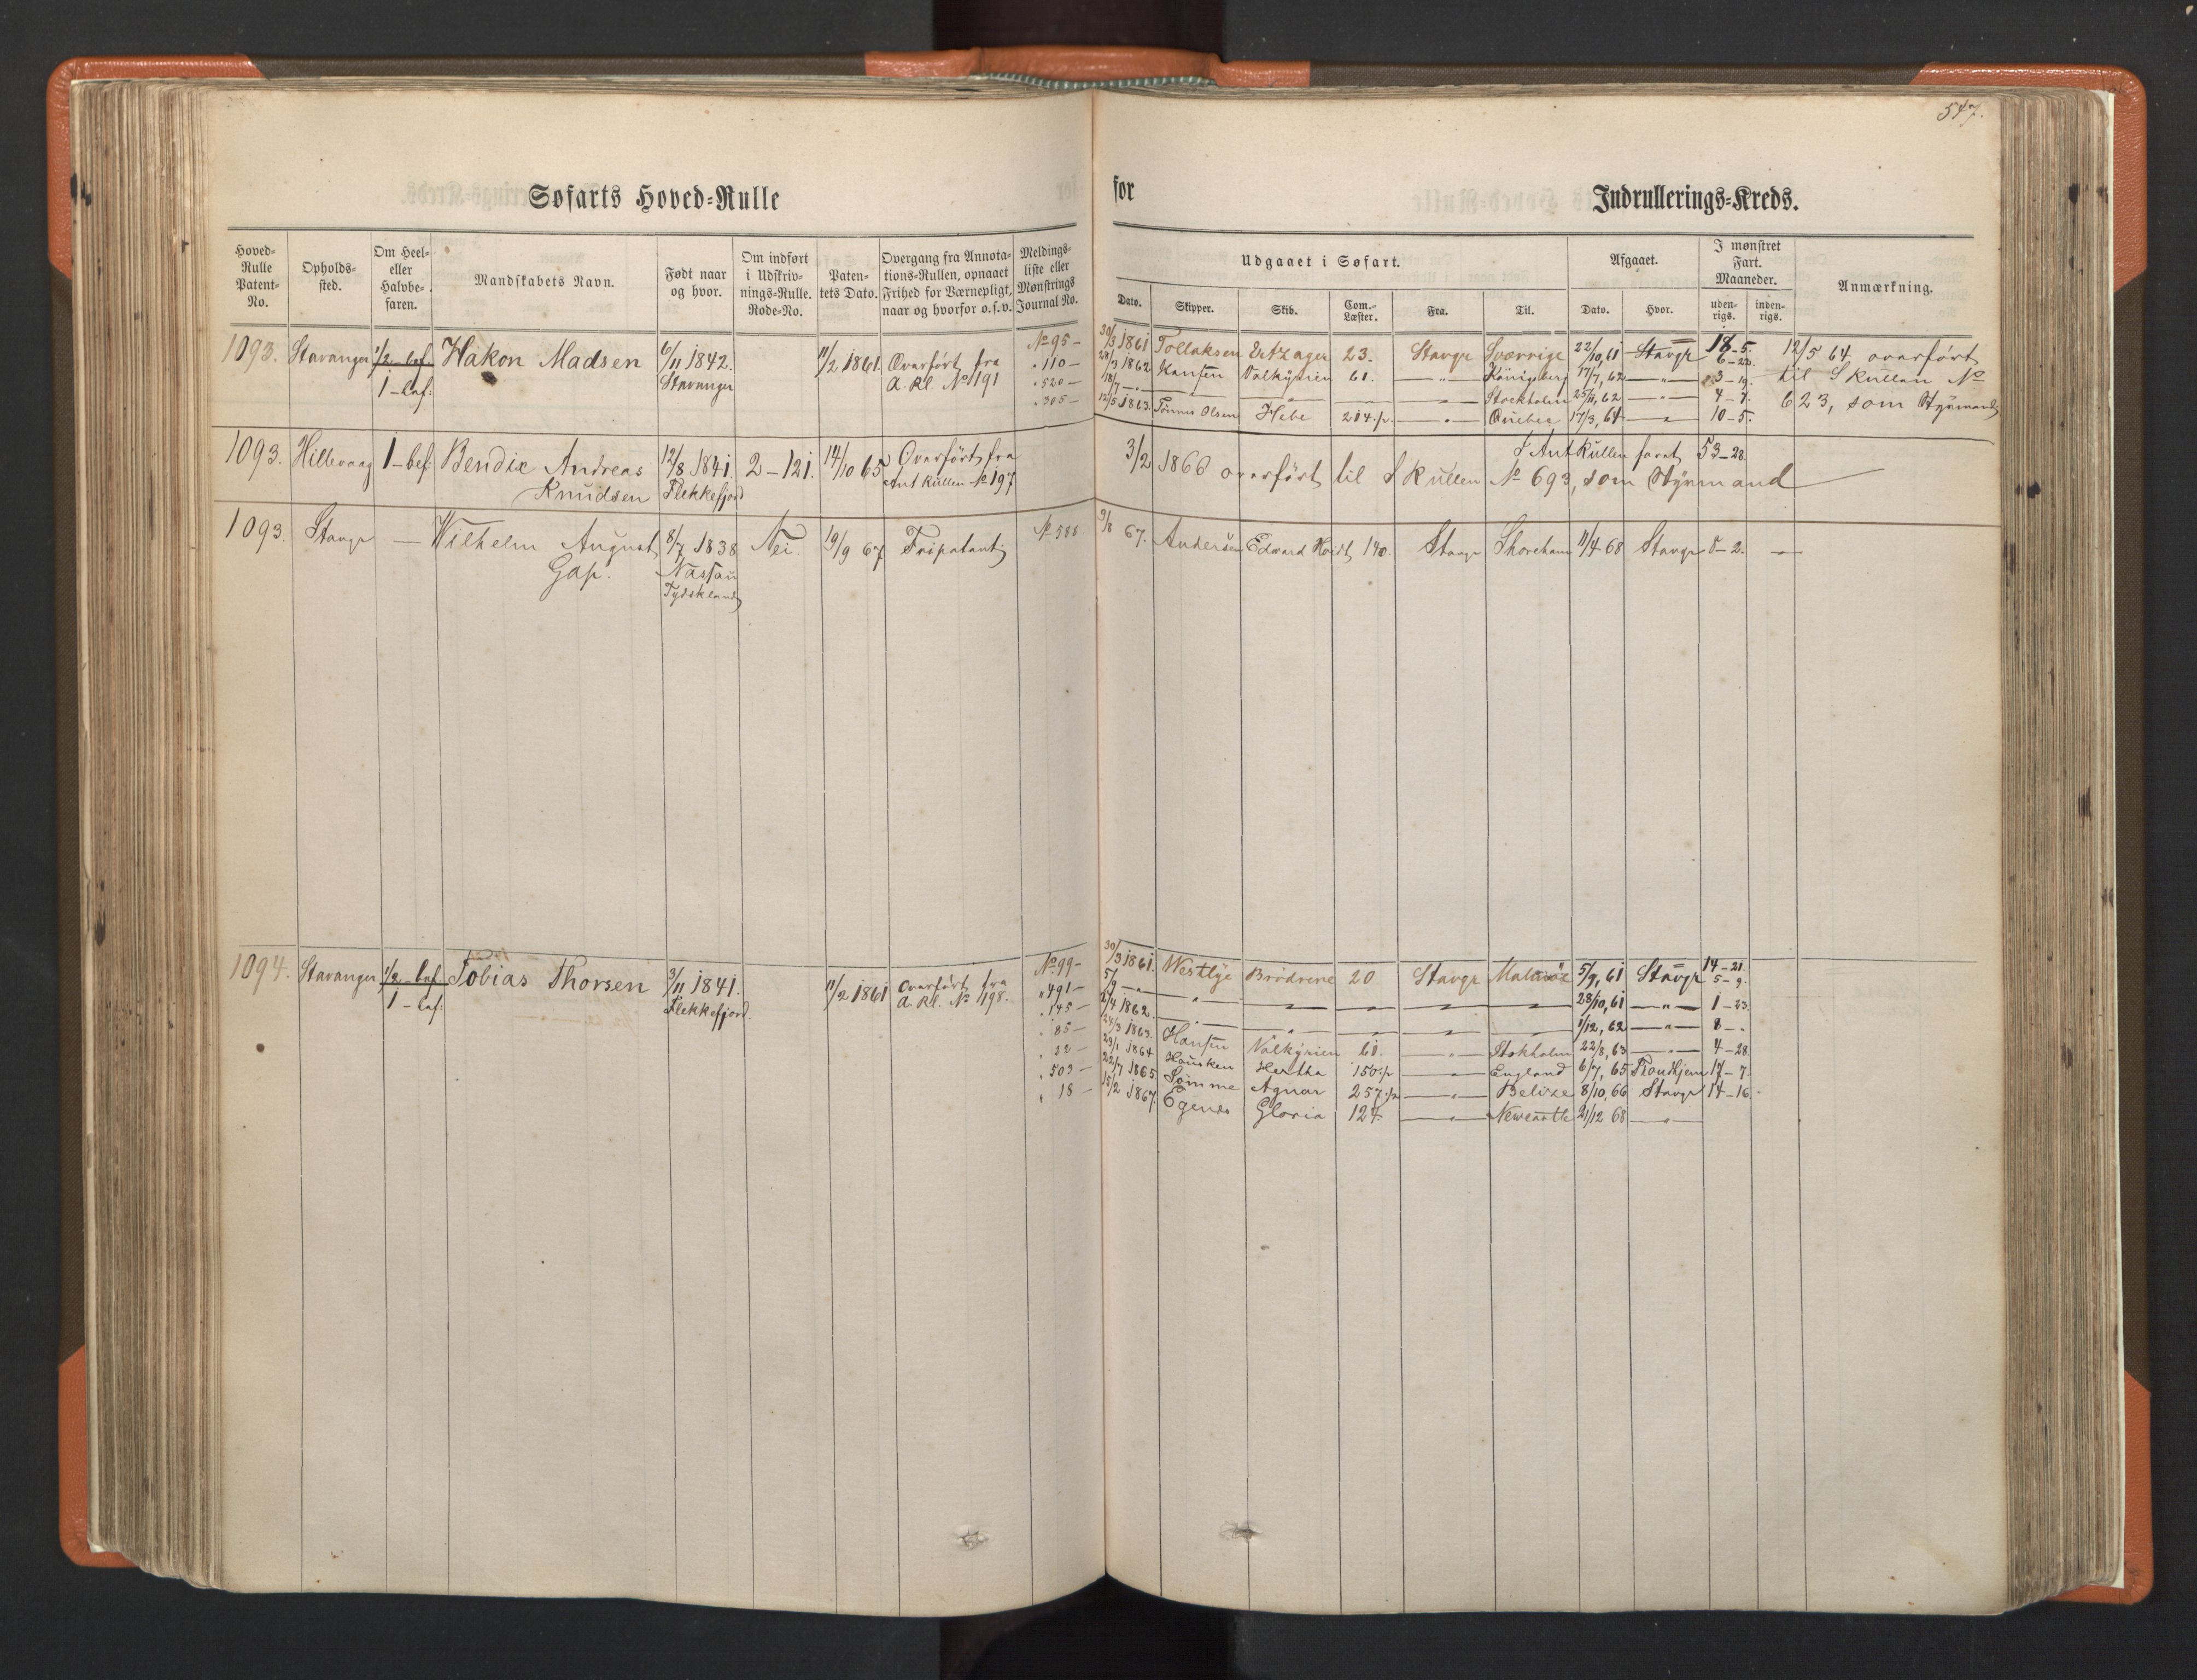 547.
Søfarts Hoved-Rulle
for
Indrullerings-Kreds.
Hoved-Rulle Patent-No.
Opholds-sted.
Om Heel- eller Halvbe-faren.
Mandskabets Navn.
Født naar og hvor.
Om indført i Udskriv-nings-Rulle. Rode-No.
Paten-tets Dato.
Overgang fra Annota-tions-Rullen, opnaaet Frihed for Værnepligt, naar og hvorfor o.s.v.
Meldings-liste eller Mønstrings Journal No.
Udgaaet i Søfart.
Afgaaet.
I mønstret Fart. Maaneder.
Anmærkning.
Dato. Skipper. Skib. Com.-Læster. Fra. Til. Dato. Hvor. uden-rigs. inden-rigs.
1093. Stavanger 1/2 bef. Hakon Madsen 6/11 1842. 11/2 1861. Overført fra No 95 - 30/3 1861 Tollaksen 23. Stavgr Sverrige 22/10, 61 Stavgr 18-5.
1 - bef: Stavanger A. Rl. No 191 " 110 - 28/3 1862 Hansen Valkyrien 61. — " — Königsberg 17/7, 62 — " —
" 520 - 18/7 — " — Stockholm 25/11, 62 — " — 4-7.
" 305 - 12/5 1863. Tønnes Olsen Hebe 214 — " — Quebec 17/3, 64 — " — 10-5.
12/5 64 overført
til S Rullen No
623, som Styrmand
I Ant Rullen faret 53-28.
1093. Hillevaag 1 - bef: Bendix Andreas 12/8 1841. 2-121. 14/10 65 Overført fra
Knudsen Flekkefjord Ant Rullen No 197
3/2 1866 overført til S Rullen No 693, som Styrmand
1093. Stavgr — Wilhelm August 8/7 1838 Nei. 19/9 67 Fripatent 9/8 67. Andersen Edward 140. Stavgr Shoreham 11/4 68 Stavgr 8-2. —
Gap. Nassau
Tydskland
1094. Stavanger 1/2 bef. Tobias Thorsen 3/11 1841. 11/2 1861 Overført fra No 99 - 30/3 1861. Westlye Brødrene 20 Stavgr 5/9, 61 Stavgr 14-21.
1 - bef: Flekkefjord. A. Rl. No 198. " 491 - 5/9 — " — 28/10, 61 — " — 1-23.
" 145 - 2/4 1862. — " — 1/12, 62 — " — 8 -
" 85 - 24/3 1863. Hansen Valkyrien 61. — " — Stokholm 22/8, 63 — " — 4-28
" 22 - 29/1 1864 Housken Hertha 150 — " — England 6/7, 65 Trondhjem 17-7.
" 503 - 22/7 1865 Sømme Agnar 257 — " — Belize 8/10, 66 Stavgr 14-16
" 18 - 15/2 1867. Egenes Gloria 127. — " — Newcastle 21/12 68 — " —